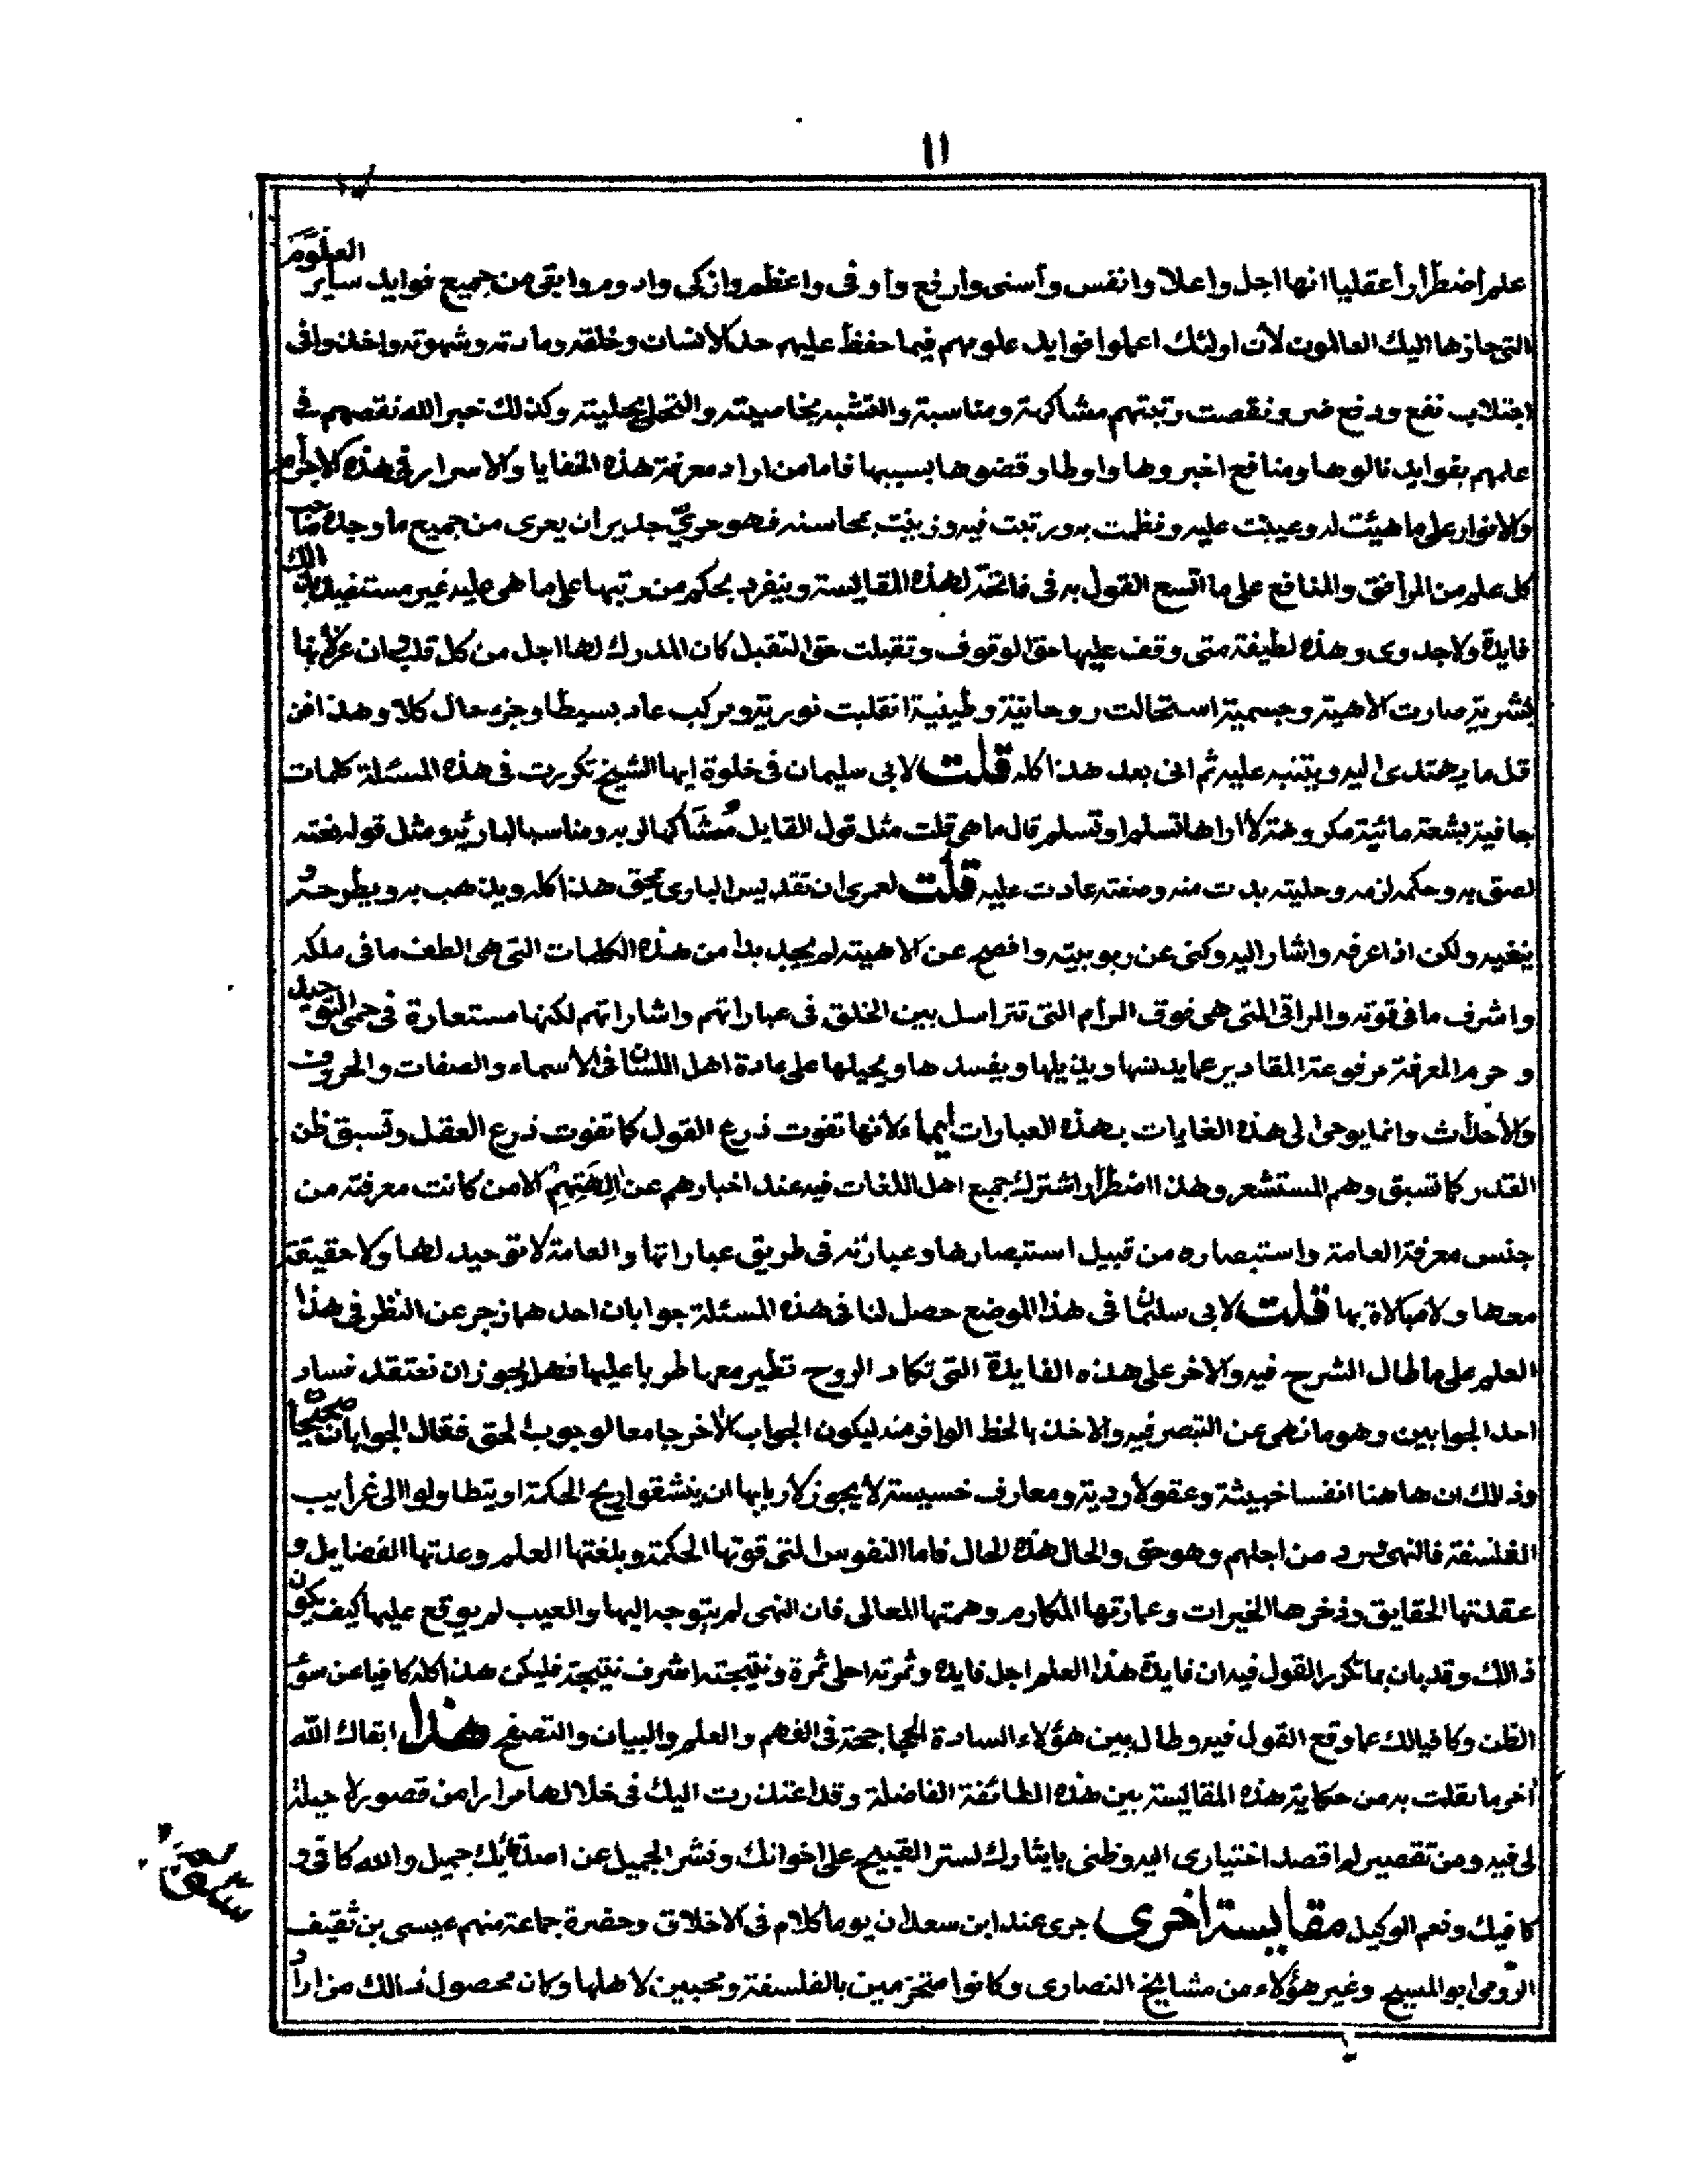 ١١
علم اضطرارا عقليا انها اجل واعلا وانفس وأسنى وأرفع وأوفى واعظم وازكى وادوم وابقى من جميع فوايد ساير العلوم
التي حازها اليك العالمون لأن اولئك اعملوا فوايد علومهم فيما حفظ عليهم حد الانسان وخلقه ومادته وشهوته واخذ وافى
اجتلاب نفع ودفع ضر ونقصت رتبتهم مشاكهة ومناسبة والتشبه بخاصيته والتحلي بحليته وكذلك خبر الله نقصهم في
علمهم بفوايد نالوها ومنافع اخبروها واوطار قضوها بسببها فاما من اراد معرفة هذه الخفايا والاسرار في هذه الاجرام
والانوار على ما هيئت له وعيبت عليه ونظمت به ورتبت فيه وزينت بمحاسنه فهو حري جدير ان يعرى من جميع ما وجده صاحب
كل علم من المرافق والمنافع على ما اتسع القول به في فاتحة لهذه المقايسة وينفرد بحكم من رتبها على ما هي عليه غير مستفيد بذالك
فايدة ولا جدوى وهذه لطيفة متى وقف عليها حق الوقوف وتقبلت حق التقبل كان المدرك لها اجل من كل ان عز لأنها
بشرية صارت الاهية وجسمية استحالت روحانية وطينية انقلبت نورية ومركب عاد بسيطا وجزء حال كلا وهذا فن
قل ما يهتدى اليه ويتنبه عليه ثم انى بعد هذا كله قلت لابي سليمان في خلوة ايها الشيخ تكررت في هذه المسئلة كلمات
جافية بشعة مكروهة لا اراها تسلم او تسلم قال ما هي قلت مثل قول القايل مشاكها لربه ومناسبا لبارئه ومثل قوله
لصق به وحكمه لزمه وحليته بدت منه وصفته عادت عليه قلت لعمرى ان تقديس البارى يمحق هذا كله ويذهب به ويطرحه
ينفيه ولكن اذا عرفه واشار اليه وكنى عن ربوبيته وافصح عن الاهيته لم يجد بدا من هذه الكلمات التي هي الطف ما فى ملكه
واشرف ما في قوته والمراقى التي هي فوق المرام التي تتراسل بين الخلق في عباراتهم واشاراتهم لكنها مستعارة في حمى التوحيد
وحرم المعرفة مرفوعة المقادير عما يدنسها ويذيلها ويفسدها ويحيلها على عادة اهل اللسان في الاسماء والصفات والحروف
والأحداث وانما يوحى الى هذه الغايات بهذه العبارات ايماء لأنها تفوت ذرع القول كما تفوت ذرع العقل وتسبق ظن
القدر كما تسبق وهم المستشعر وهذا اضطرار اشترك جميع اهل اللغات فيه عند اخبارهم عن الهتهم الا من كانت معرفته من
جنس معرفة العامة واستبصاره من قبيل استبصارها وعبارته في طريق عباراتها والعامة لا توحيد لها ولا حقيقة
معها ولا مبالاة بها قلت لابي سليمان في هذا الموضع حصل لنا في هذه المسئلة جوابان احدهما زجر عن النظر في هذا
العلم على ما طال الشرح فيه والاخر على هذه الفايدة التي تكاد الروح تطير معها طربا عليها فهل يجوز ان نعتقد فساد
احد الجوابين وهو ما نهى عن التبصر فيه والاخذ بالحظ الوافر منه ليكون الجواب الأخر جامعا لوجوب الحق فقال الجوابان صحيحان
وذلك ان هاهنا انفسا خبيثة وعقولا ردية ومعارف خسيسة لا يجوز لاربابها ان ينشقوا ريح الحكمة او يتطاولوا الى غرايب
الفلسفة فالنهى ورد من اجلهم وهو حق والحال هذه الحال فاما النفوس التي قوتها الحكمة وبلغتها العلم وعدتها الفضايل و
عقدتها الحقايق وذخرها الخيرات وعمارتها المكارم وهمتها المعالى فان النهى لم يتوجه اليها والعيب لم يوقع عليها كيف يكون
ذالك وقد بان بما تكرر القول فيه ان فايدة هذا العلم اجل فايدة وثمرته احلى ثمرة ونتيجته اشرف نتيجة فليكن هذا كله كافيا عن سوء
الظن وكافيا لك عما وقع القول فيه وطال بين هؤلاء السادة الجحاجحة في الفهم والعلم والبيان والتصفح هذا ابقاك الله
آخر ما نقلت به من حكاية هذه المقايسة بين هذه الطائفة الفاضلة وقد اعتذرت اليك في خلالها مرارا من قصور لا حيلة
لي فيه ومن تقصير لم اقصد اختيارى اليه وظنى بايثارك لستر القبيح على اخوانك ونشر الجميل عن اصدقائك جميل والله كافى و
كافيك ونعم الوكيل مقايسة اخرى جرى عند ابن سعدان يوما كلام في الاخلاق وحضرة جماعة منهم عيسى بن ثقيف
الرومى ابو المسيح وغير هؤلاء من مشايخ النصارى وكانوا متحزمين بالفلسفة ومحبين لاهلها وكان محصول ذالك